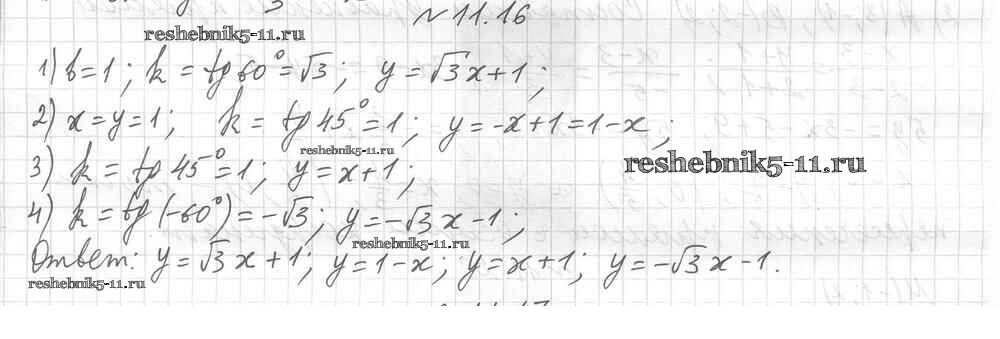 №11.16
reshebnik5-11.ru
1) b=1; k = tg 60° = √3; y = √3x+1;
2) x=y=1; k = tg 45° = 1; y = -x+1 = 1-x;
reshebnik5-11.ru
reshebnik5-11.ru
3) k = tg 45° = 1; y = x+1;
4) k = tg (-60°) = -√3; y = -√3x-1;
reshebnik5-11.ru
Ответ: y = √3x+1; y = 1-x; y = x+1; y = -√3x-1.
reshebnik5-11.ru